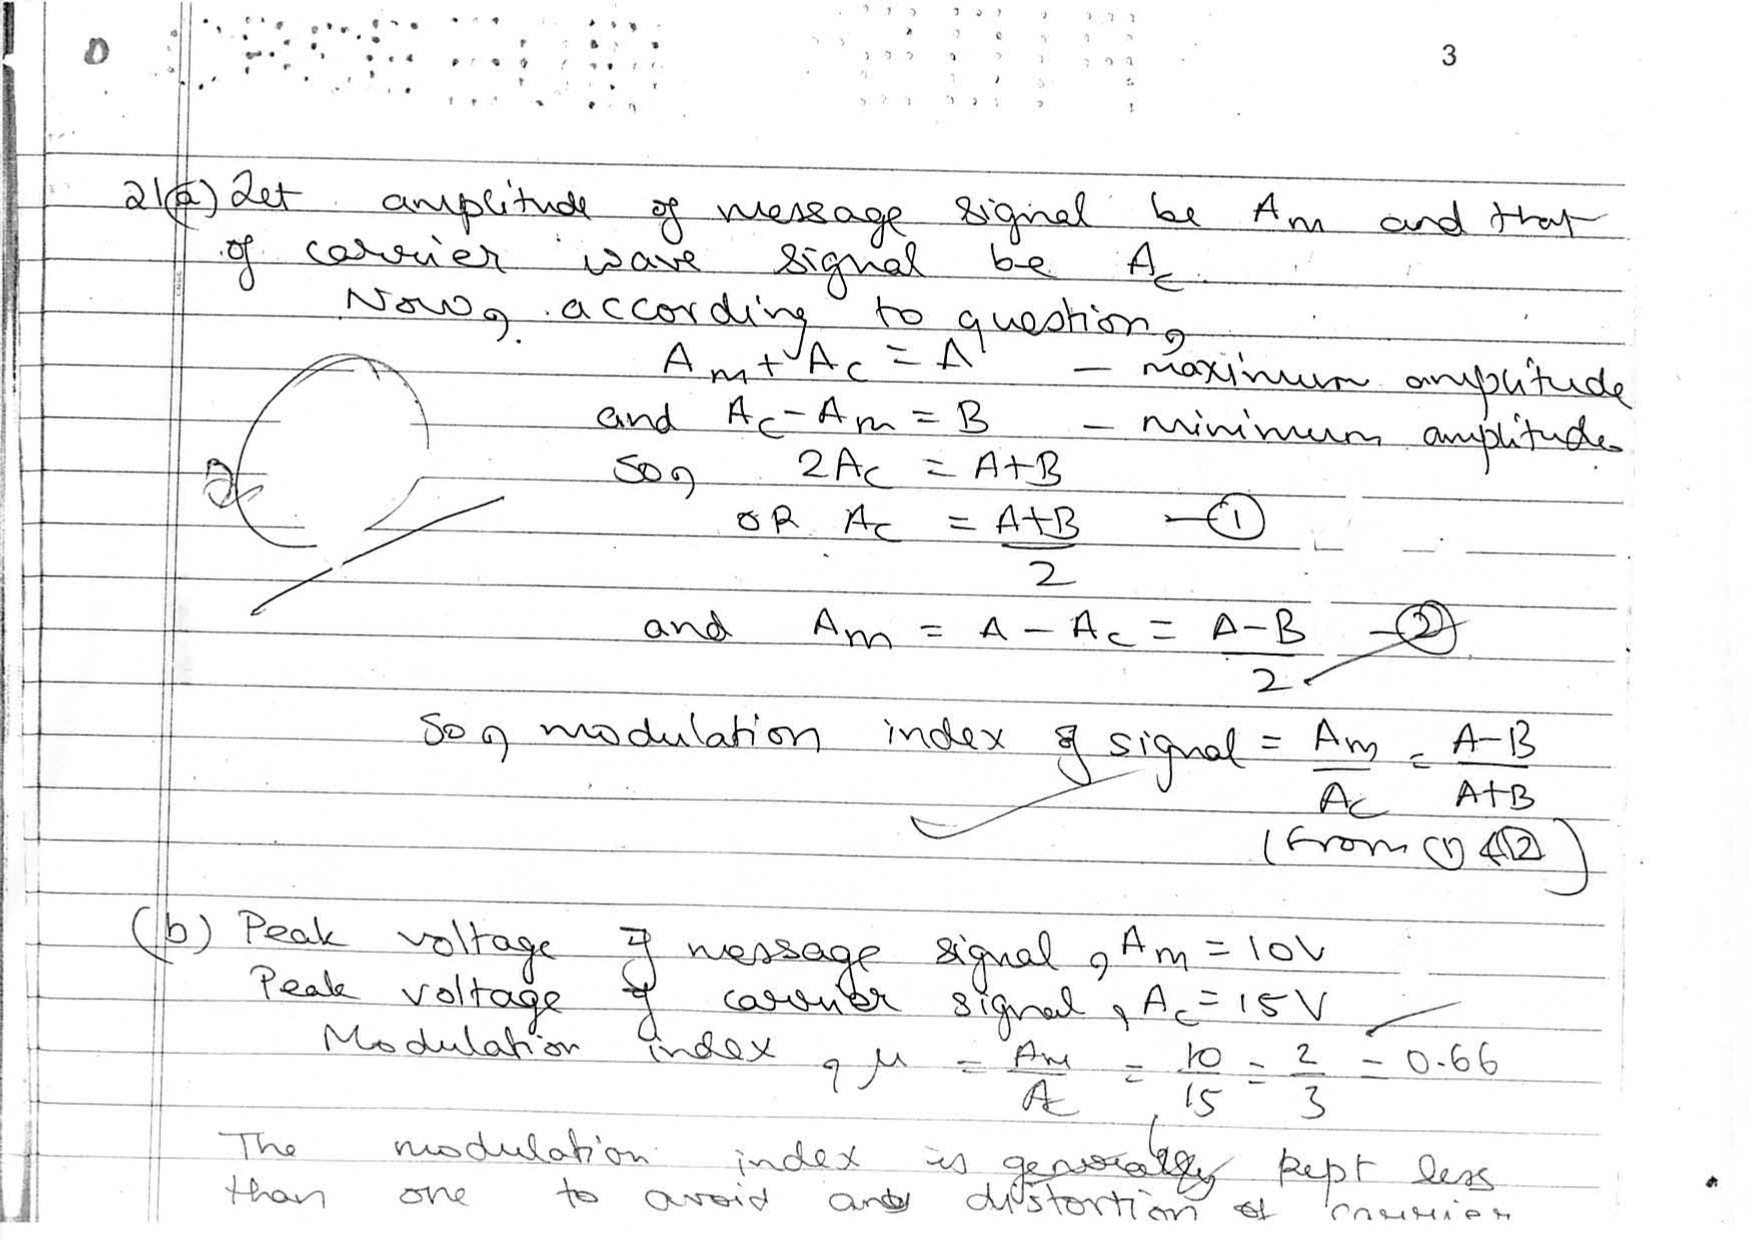 3
21(a) Let amplitude of message signal be Am and that
of carrier wave signal be Ac.
Now, according to question,
Am + Ac = A - maximum amplitude
and Ac - Am = B - minimum amplitude
So, 2Ac = A+B
OR Ac = A+B/2 - ①
and Am = A - Ac = A-B/2 - ②
So, modulation index of signal = Am/Ac = A-B/A+B
(From ① & ②)
(b) Peak voltage of message signal, Am = 10V
Peak voltage of carrier signal, Ac = 15V
Modulation index, μ = Am/Ac = 10/15 = 2/3 = 0.66
The modulation index is generally kept less
than one to avoid any distortion of carrier